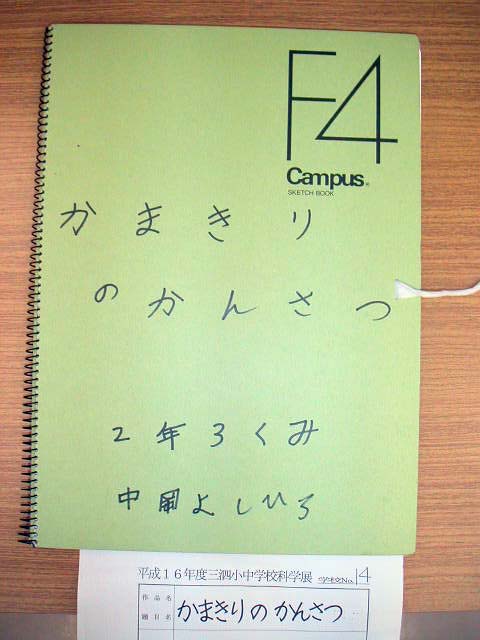 F4
Campus
SKETCH BOOK
かまきり
のかんさつ
2年3くみ
中岡よしひろ
平成16年度三泗小中学校科学展
14
作品名
題目名
かまきりの かんさつ